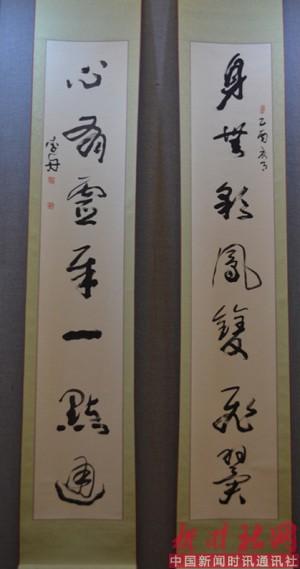 身無彩鳳雙飛翼
乙酉
心有靈犀一點通
中国新闻时讯通讯社